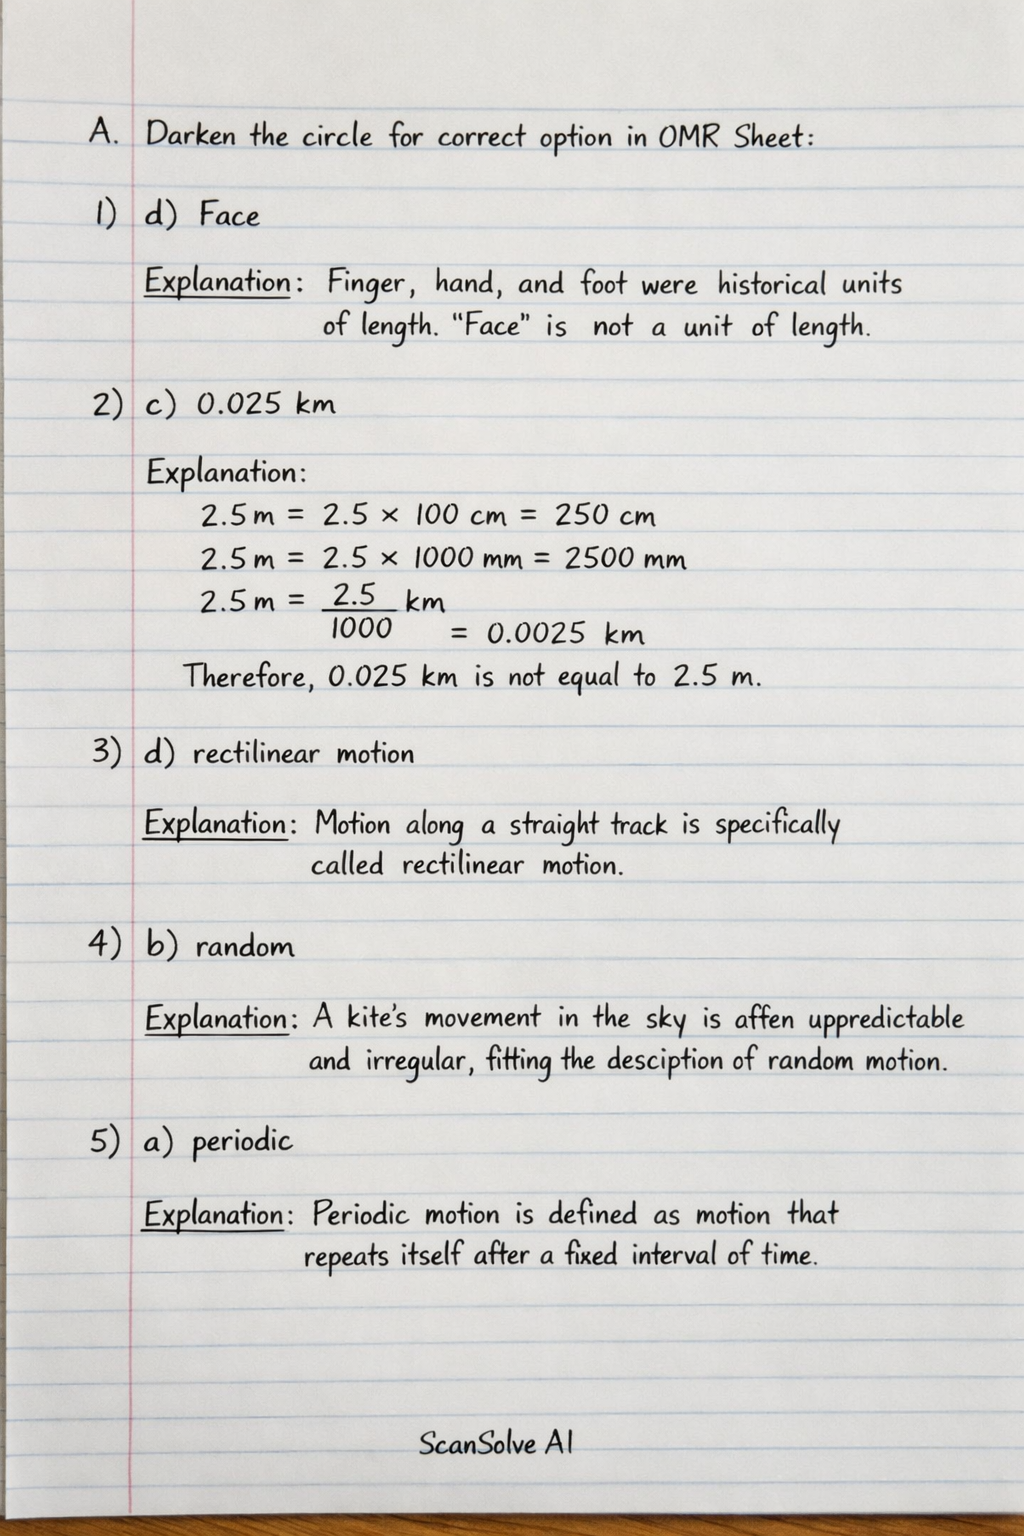 A. Darken the circle for correct option in OMR Sheet:
1) d) Face
Explanation: Finger, hand, and foot were historical units
of length. “Face” is not a unit of length.
2) c) 0.025 km
Explanation:
2.5 m = 2.5 × 100 cm = 250 cm
2.5 m = 2.5 × 1000 mm = 2500 mm
2.5 m = 2.5/1000 km
= 0.0025 km
Therefore, 0.025 km is not equal to 2.5 m.
3) d) rectilinear motion
Explanation: Motion along a straight track is specifically
called rectilinear motion.
4) b) random
Explanation: A kite's movement in the sky is affen uppredictable
and irregular, fitting the desciption of random motion.
5) a) periodic
Explanation: Periodic motion is defined as motion that
repeats itself after a fixed interval of time.
ScanSolve AI